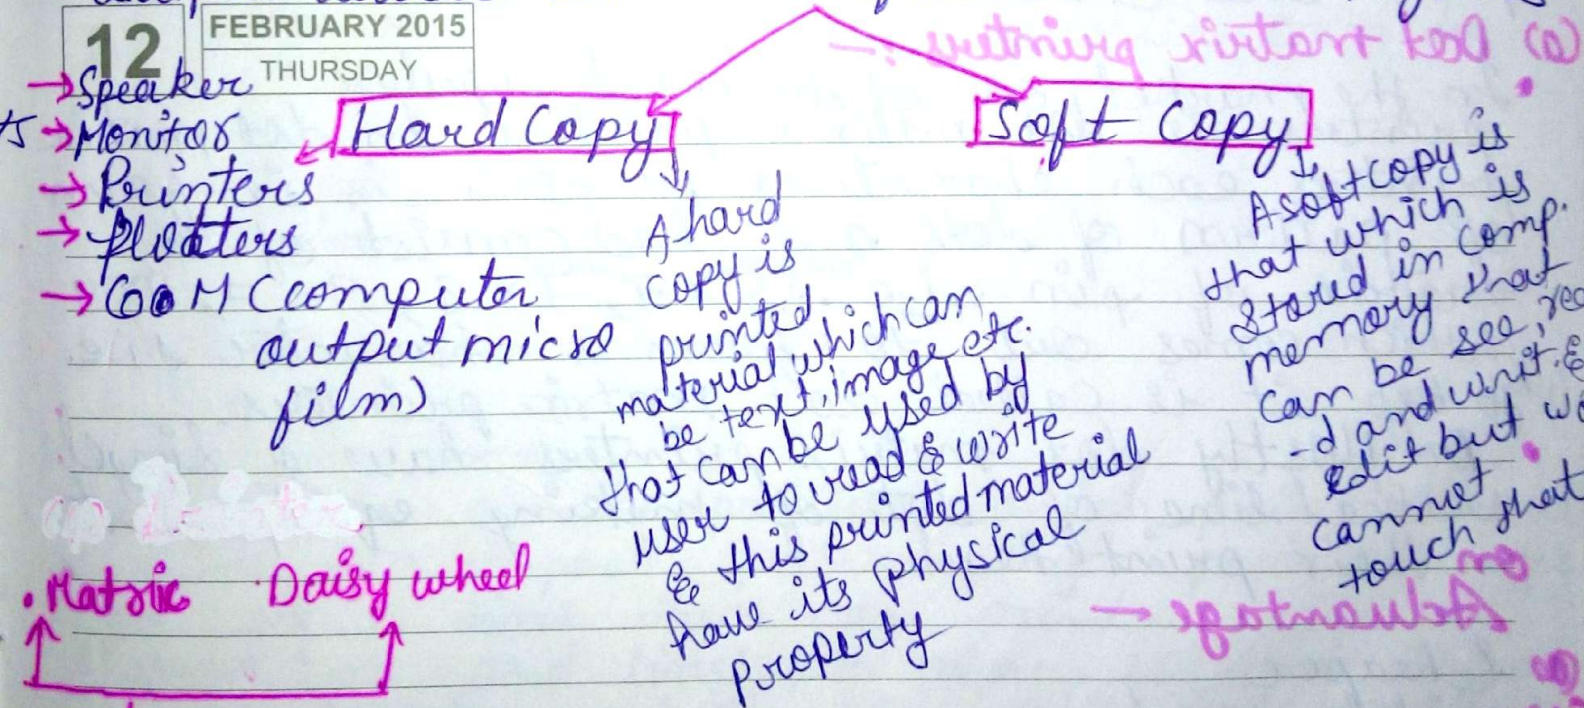 12
FEBRUARY 2015
THURSDAY
→ Speaker
→ Monitor
→ Printers
→ Plotters
→ COM (computer
output micro
film)
Hard Copy
A hard
copy is
printed
material which can
be text, image etc.
that can be used by
user to read & write
& this printed material
have its physical
property
Soft Copy
A soft copy is
that which is
stored in comp.
memory that
can be see, rea
-d and writ. &
edit but we
cannot
touch that
. Matric
. Daisy wheel